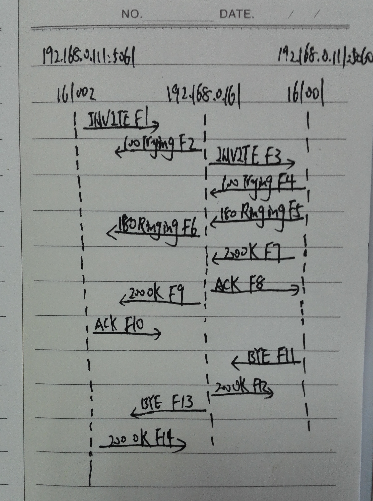 NO. DATE. / /
192.168.0.11:5061 192.168.0.11:5060
161002 192.168.0.161 161001
INVITE F1
100 Trying F2
INVITE F3
100 Trying F4
180 Ringing F5
180 Ringing F6
200 OK F7
ACK F8
200 OK F9
ACK F10
BYE F11
200 OK F12
BYE F13
200 OK F14